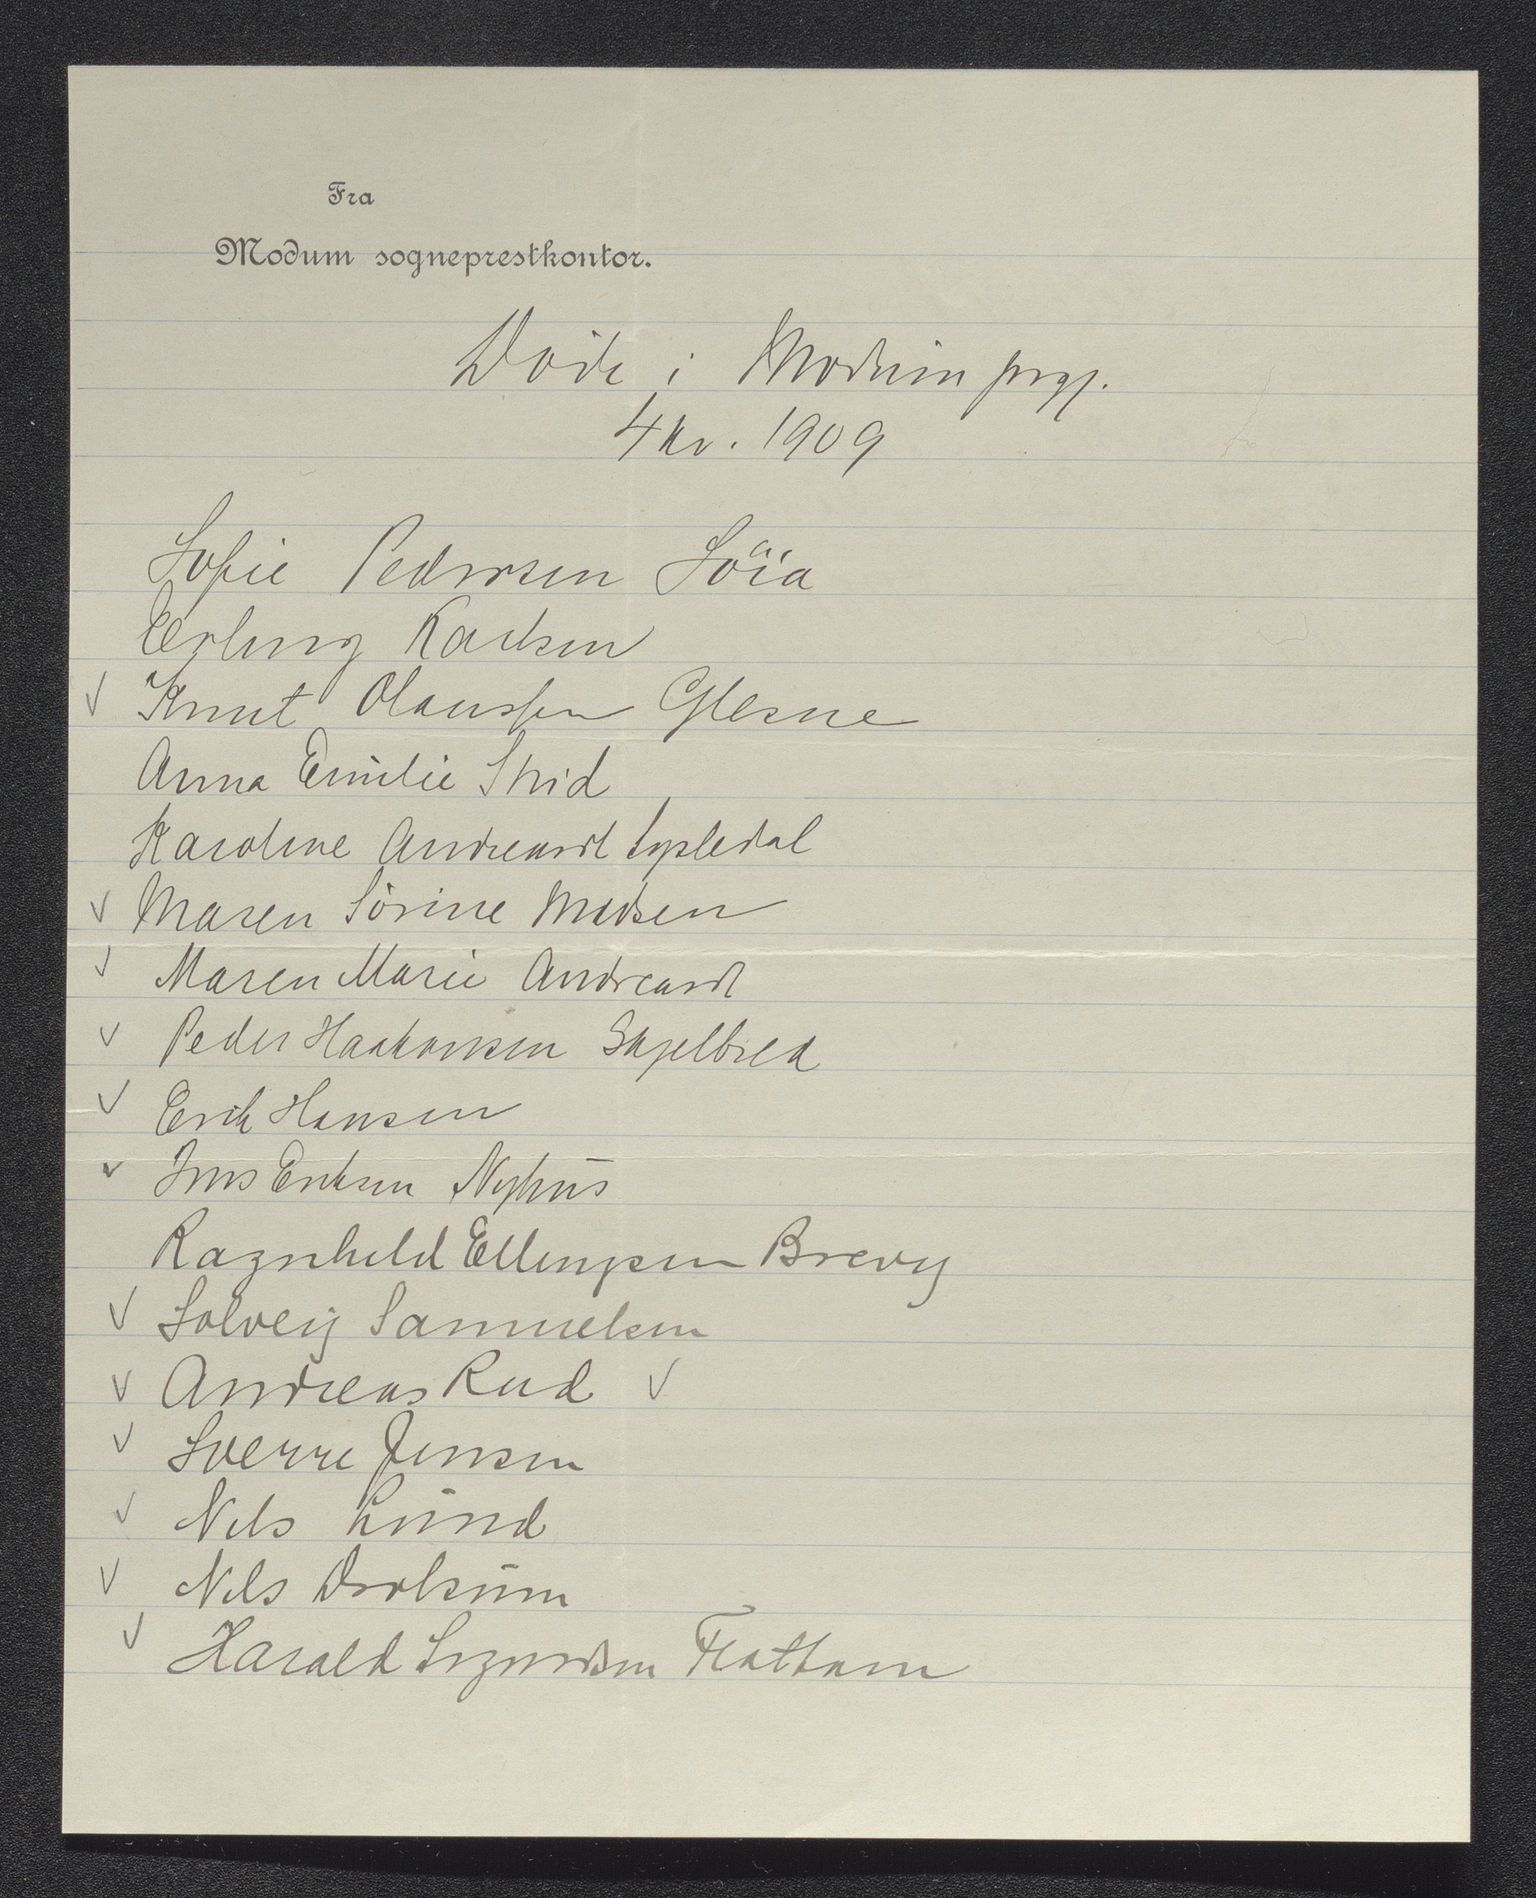 Fra
Modum sogneprestkontor.
Døde i Modum prgj.
4 kv. 1909
Sofie Pedersen
Erling Karlsen
√ Knut Olaussen Glesne
Anna Emilie Skid
Karoline Andreasdt
√ Maren Sørine Madsen
√ Maren Marie Andreasdt
√ Peder Haakonsen Skjelbred
√ Erik Hansen
√ Jens Eriksen Nyhus
Ragnhild Ellingsen
√ Solveig Samuelsen
√ Andreas Rud √
√ Sverre Jensen
√ Nils Lund
√ Nils Drolsum
√ Harald Sigurdsen